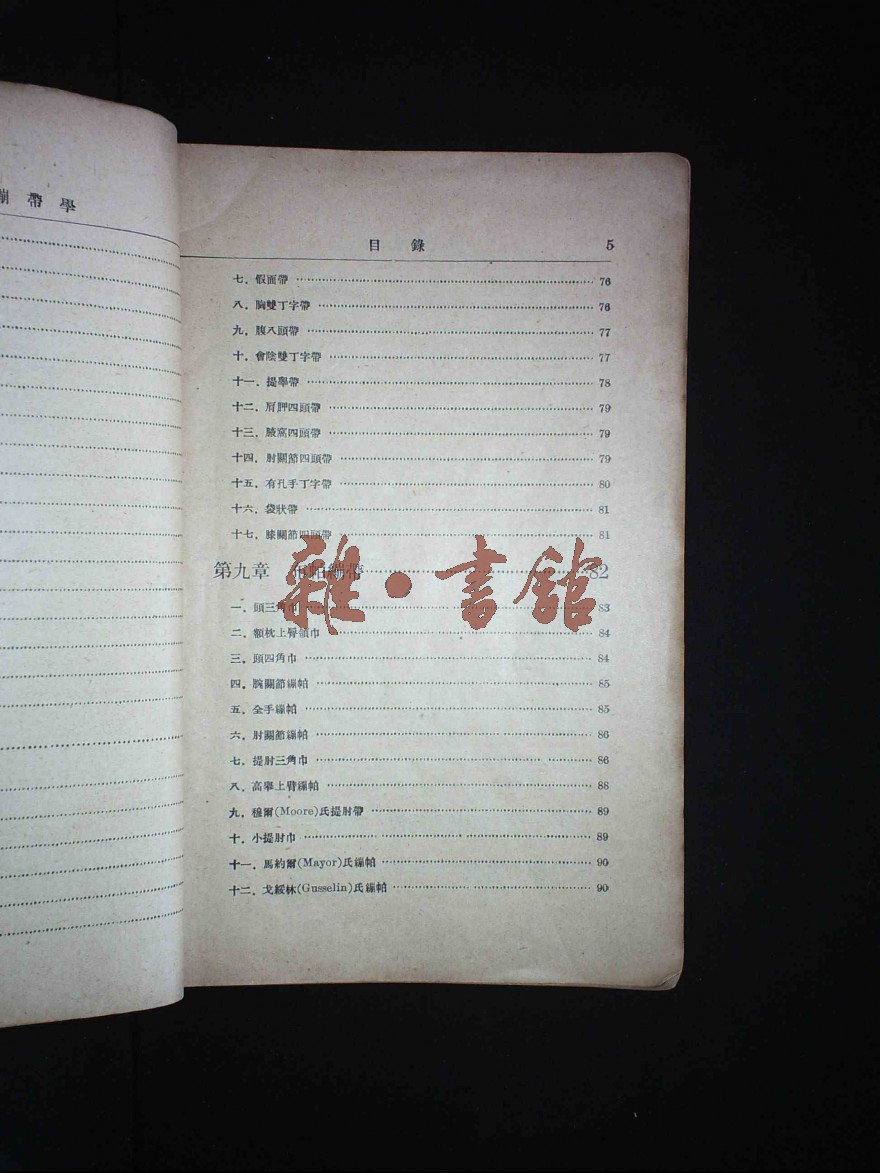 繃帶學
目錄 5
七．假面帶 76
八．胸雙丁字帶 76
九．腹八頭帶 77
十．會陰雙丁字帶 77
十一．提舉帶 78
十二．肩胛四頭帶 79
十三．腋窩四頭帶 79
十四．肘關節四頭帶 79
十五．有孔手丁字帶 80
十六．袋狀帶 81
十七．膝關節四頭帶 81
第九章 布帕繃帶 82
一．頭三角巾 83
二．額枕上臂領巾 84
三．頭四角巾 84
四．腕關節繃帕 85
五．全手繃帕 85
六．肘關節繃帕 86
七．提肘三角巾 86
八．高舉上臂繃帕 88
九．穆爾(Moore)氏提肘帶 89
十．小提肘巾 89
十一．馬約爾(Mayor)氏繃帕 90
十二．戈綏林(Gusselin)氏繃帕 90
雜·書館